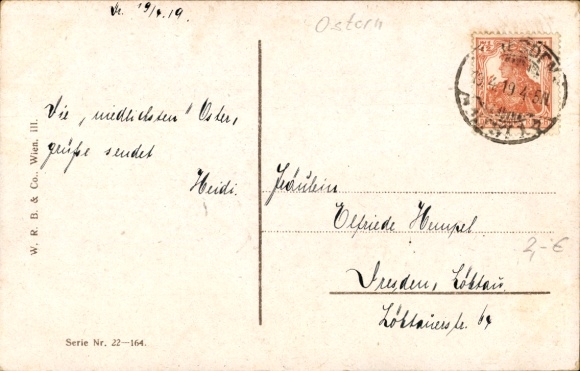 Dr. 19/4.19.
Ostern
Die „niedlichsten" Oster,
grüße sendet
Heidi.
Fräulein
Elfriede Hempel
Dresden, Löbtau.
Löbtauerstr. 64
2,-€
W. R. B. & Co., Wien, III.
Serie Nr. 22—164.
7½